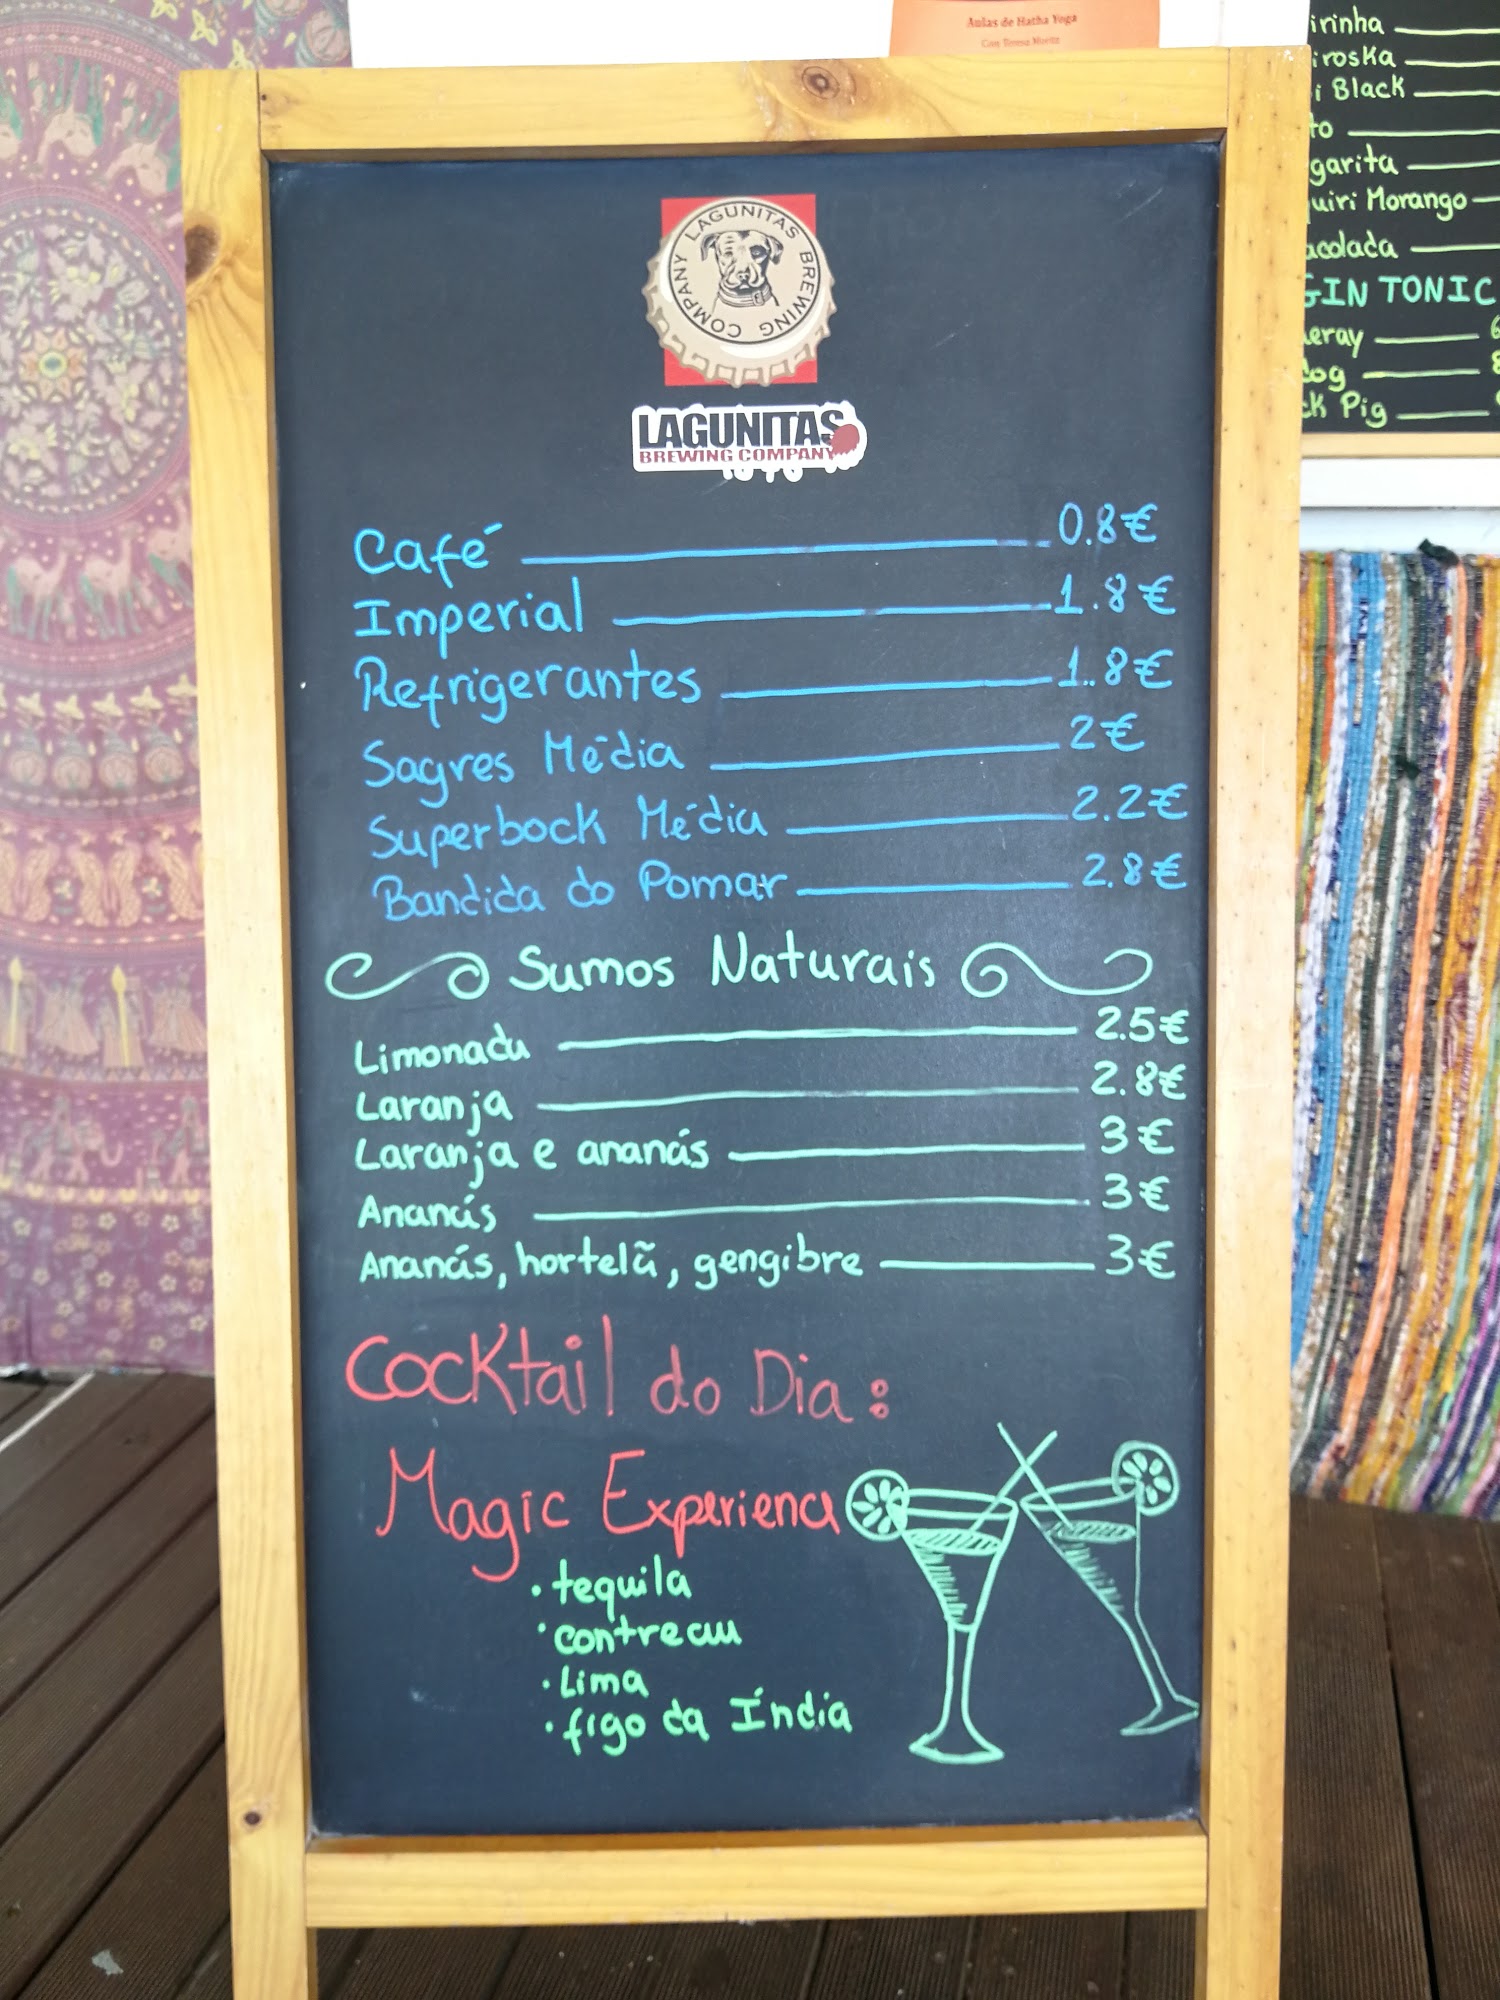 Aulas de Hatha Yoga
Con Teresa Moritz
LAGUNITAS BREWING COMPANY
LAGUNITAS
BREWING COMPANY
Café 0.8€
Imperial 1.8€
Refrigerantes 1.8€
Sagres Média 2€
Superbock Média 2.2€
Bandida do Pomar 2.8€
Sumos Naturais
Limonada 2.5€
Laranja 2.8€
Laranja e ananás 3€
Ananás 3€
Ananás, hortelã, gengibre 3€
Cocktail do Dia:
Magic Experience
• tequila
• contreau
• Lima
• figo da Índia
irinha
iroska
i Black
to
garita
uiri Morango
acolada
GIN TONIC
eray 6
dog 8
ck Pig